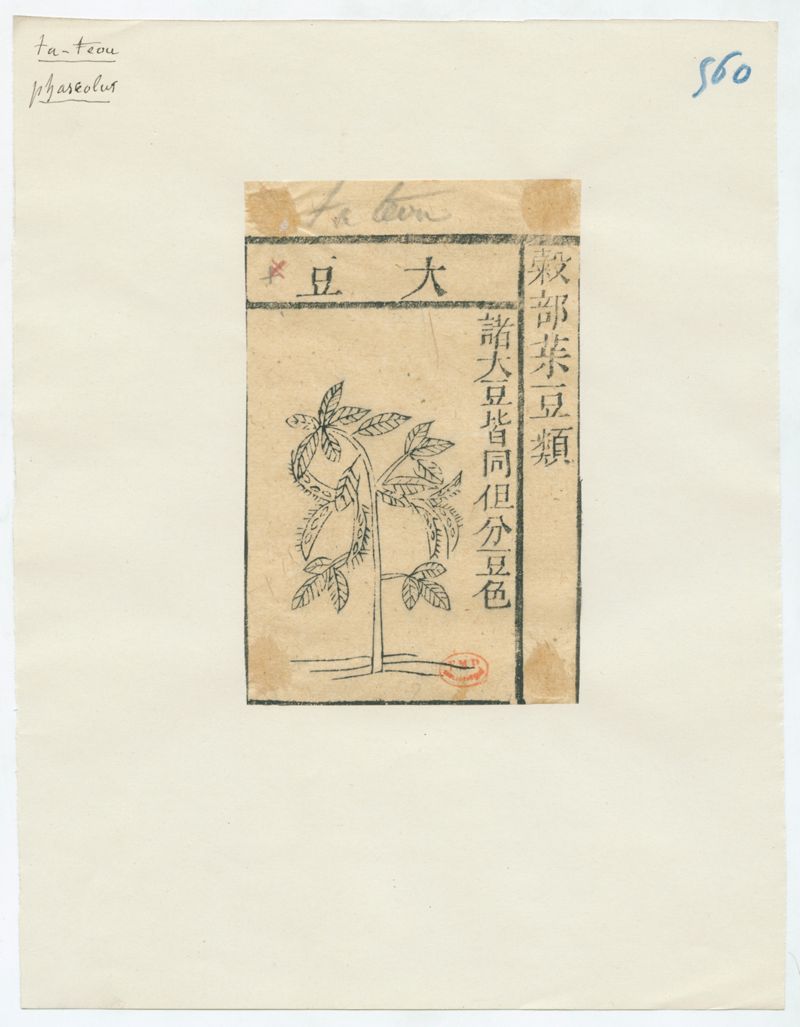 ta-teou
phaseolus
560
ta teou
穀部茮豆類
大豆
諸大豆皆同但分豆色